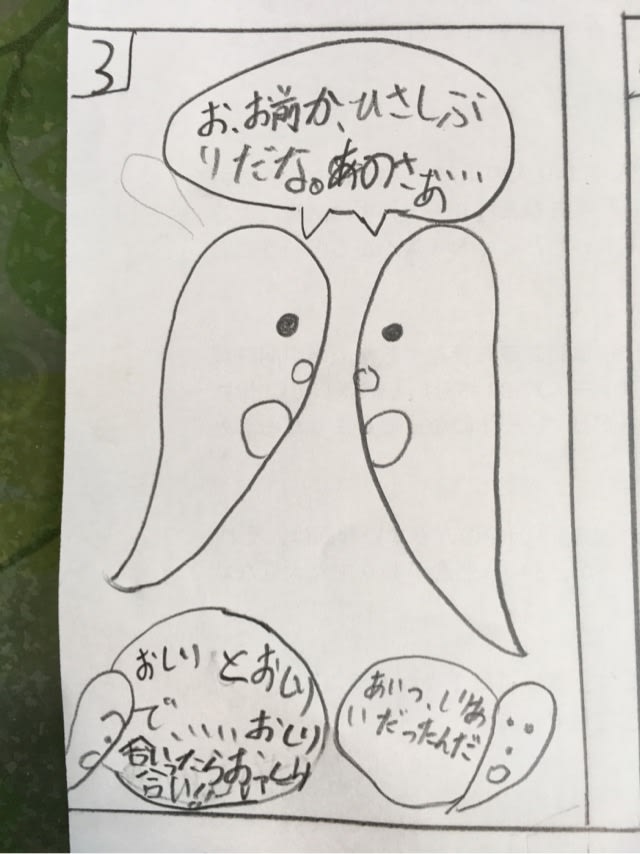 3
お、お前か、ひさしぶ
りだな。あのさぁ…
おしりとおしり
で、、、、、おしり
合いったらおしり
合い!!
あいつ、しりあ
いだったんだ